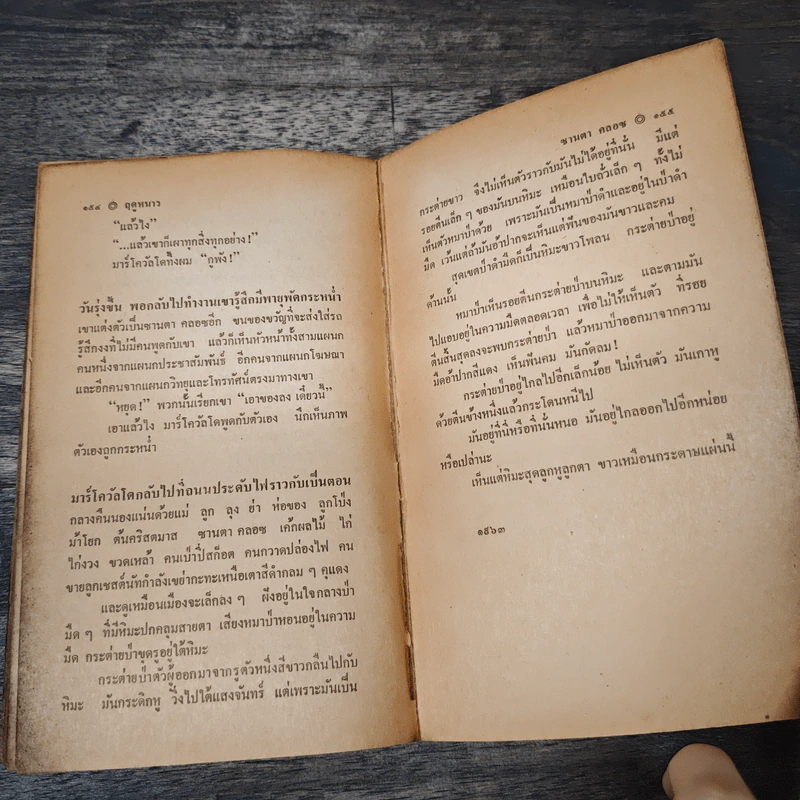 ๑๕๔ ◎ ฤดูหนาว
“แล้วไง”
“...แล้วเขาก็เผาทุกสิ่งทุกอย่าง!”
มาร์โควัลโดทึ้งผม “กูพัง!”
วันรุ่งขึ้น พอกลับไปทำงานเขารู้สึกมีพายุพัดกระหน่ำ
เขาแต่งตัวเป็นซานตา คลอซอีก ขนของขวัญที่จะส่งใส่รถ
รู้สึกงงที่ไม่มีคนพูดกับเขา แล้วก็เห็นหัวหน้าทั้งสามแผนก
คนหนึ่งจากแผนกประชาสัมพันธ์ อีกคนจากแผนกโฆษณา
และอีกคนจากแผนกวิทยุและโทรทัศน์ตรงมาทางเขา
“หยุด!” พวกนั้นเรียกเขา “เอาของลง เดี๋ยวนี้”
เอาแล้วไง มาร์โควัลโดพูดกับตัวเอง นึกเห็นภาพ
ตัวเองถูกกระหน่ำ
มาร์โควัลโดกลับไปที่ถนนประดับไฟราวกับเป็นตอน
กลางคืนนองแน่นด้วยแม่ ลูก ลุง ย่า ห่อของ ลูกโป่ง
ม้าโยก ต้นคริสตมาส ซานตา คลอซ เค้กผลไม้ ไก่
ไก่งวง ขวดเหล้า คนเป่าปี่สก็อต คนกวาดปล่องไฟ คน
ขายลูกเชสต์นัทกำลังเขย่ากะทะเหนือเตาสีดำกลม ๆ คุแดง
และดูเหมือนเมืองจะเล็กลง ๆ ฝังอยู่ในใจกลางป่า
มืด ๆ ที่มีหิมะปกคลุมสายตา เสียงหมาป่าหอนอยู่ในความ
มืด กระต่ายป่าขุดรูอยู่ใต้หิมะ
กระต่ายป่าตัวผู้ออกมาจากรูตัวหนึ่งสีขาวกลืนไปกับ
หิมะ มันกระดิกหู วิ่งไปใต้แสงจันทร์ แต่เพราะมันเป็น
ซานตา คลอซ ◎ ๑๕๕
กระต่ายขาว จึงไม่เห็นตัวราวกับมันไม่ได้อยู่ที่นั่น มีแต่
รอยตีนเล็ก ๆ ของมันบนหิมะ เหมือนใบถั่วเล็ก ๆ ทั้งไม่
เห็นตัวหมาป่าด้วย เพราะมันเป็นหมาป่าดำและอยู่ในป่าดำ
มืด เว้นแต่ถ้ามันอ้าปากจะเห็นแต่ฟันของมันขาวและคม
สุดเขตป่าดำมืดก็เป็นหิมะขาวโพลน กระต่ายป่าอยู่
ด้านนั้น
หมาป่าเห็นรอยตีนกระต่ายป่าบนหิมะ และตามมัน
ไปแอบอยู่ในความมืดตลอดเวลา เพื่อไม่ให้เห็นตัว ที่รอย
ตีนสิ้นสุดลงจะพบกระต่ายป่า แล้วหมาป่าออกมาจากความ
มืดอ้าปากสีแดง เห็นฟันคม มันกัดลม!
กระต่ายป่าอยู่ไกลไปอีกเล็กน้อย ไม่เห็นตัว มันเกาหู
ด้วยตีนข้างหนึ่งแล้วกระโดนหนีไป
มันอยู่ที่นี่หรือที่นั่นหนอ มันอยู่ไกลออกไปอีกหน่อย
หรือเปล่านะ
เห็นแต่หิมะสุดลูกหูลูกตา ขาวเหมือนกระดาษแผ่นนี้
๑๙๖๓